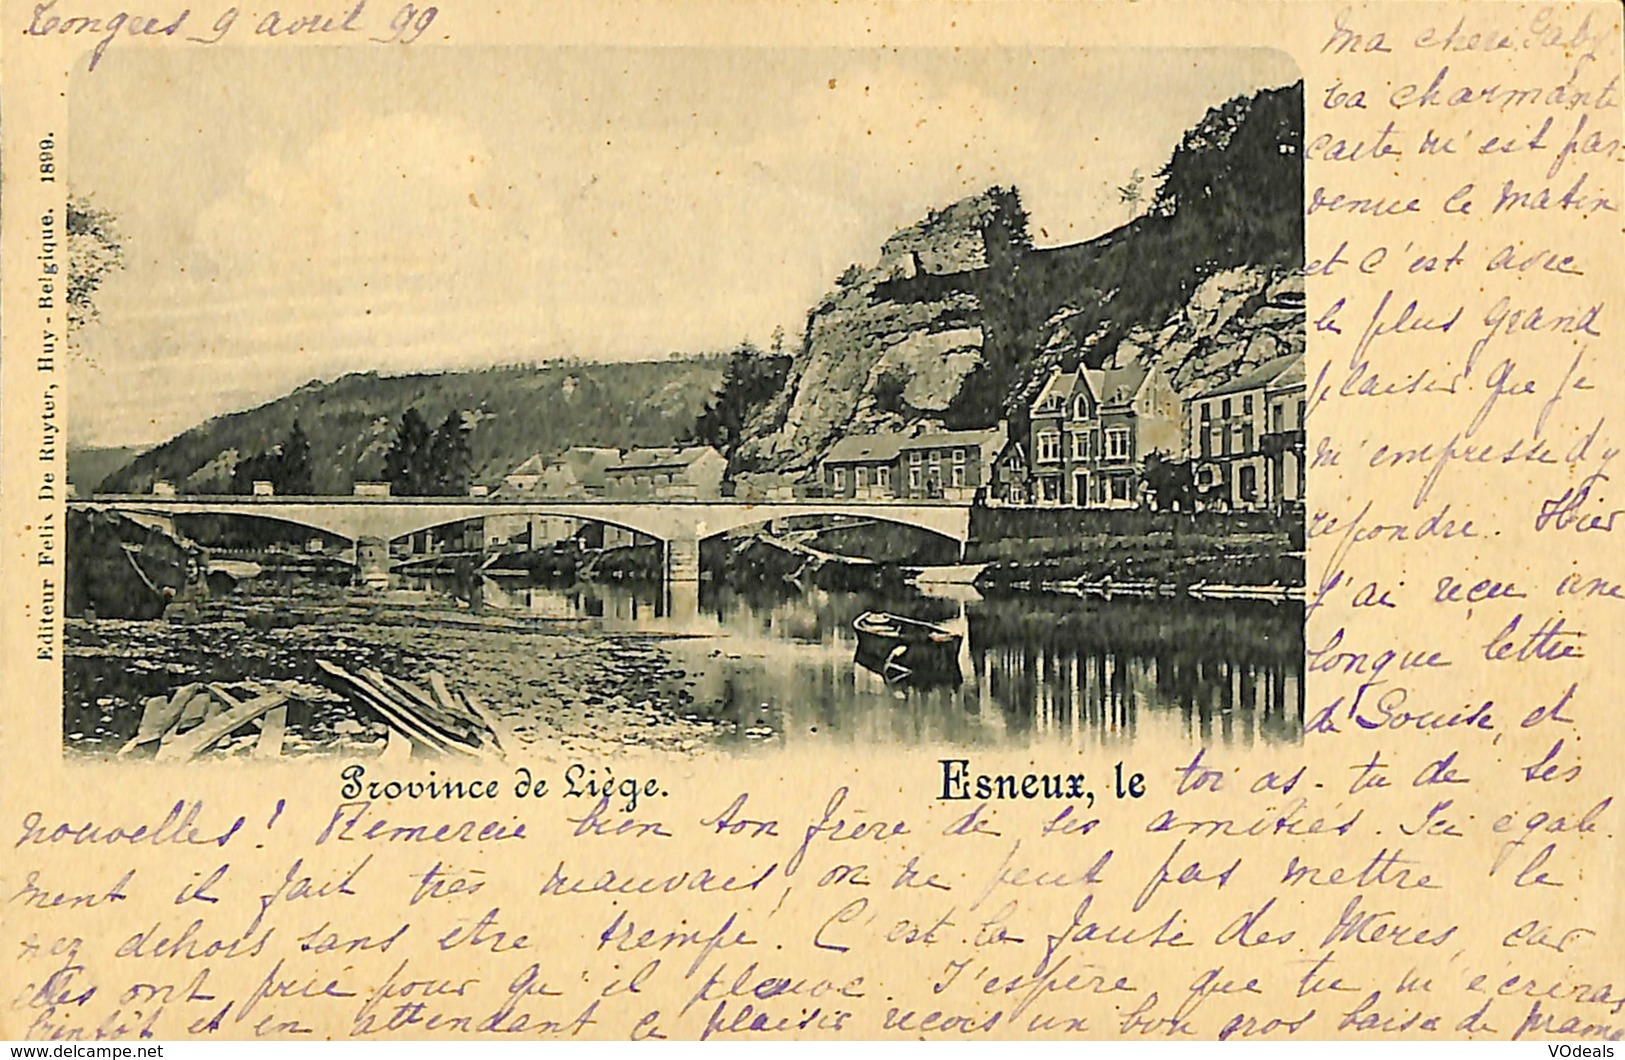 Tongres 9 avril 99.
Ma chère Gaby
ta charmante
carte m'est par-
venue ce matin
et c'est avec
le plus grand
plaisir que je
m'empresse d'y
répondre. Hier
j'ai reçu une
longue lettre
de Louise, et
toi as-tu de ses
nouvelles! Remercie bien ton frère de ses amitiés. Ici égale-
ment il fait très mauvais, on ne peut pas mettre le
nez dehors sans être trempé. C'est la faute des Mères, car
elles ont prié pour qu'il pleuve. J'espère que tu m'écriras
bientôt et en attendant ce plaisir reçois un bon gros baiser de
Editeur Felix De Ruyter, Huy - Belgique. 1899.
Province de Liège.
Esneux, le
VOdeals